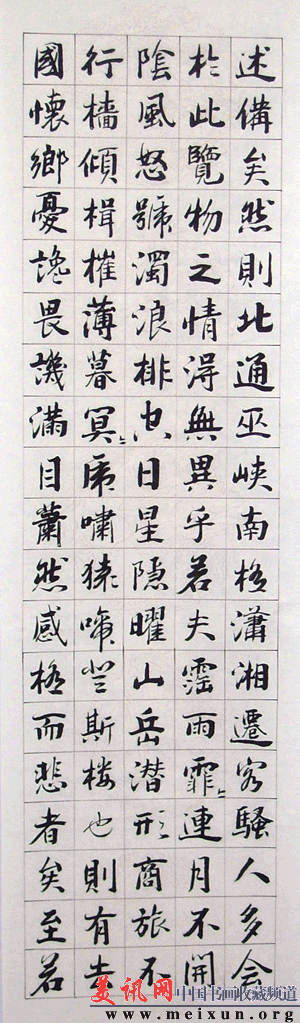 述備矣然則北通巫峽南極瀟湘遷客騷人多会
於此覽物之情得無異乎若夫霪雨霏〻連月不開
陰風怒號濁浪排空日星隱曜山岳潛形商旅不
行檣傾楫摧薄暮冥〻虎嘯猿啼登斯樓也則有去
國懷鄉憂讒畏譏滿目蕭然感極而悲者矣至若
美讯网 中国书画收藏频道
www.meixun.org